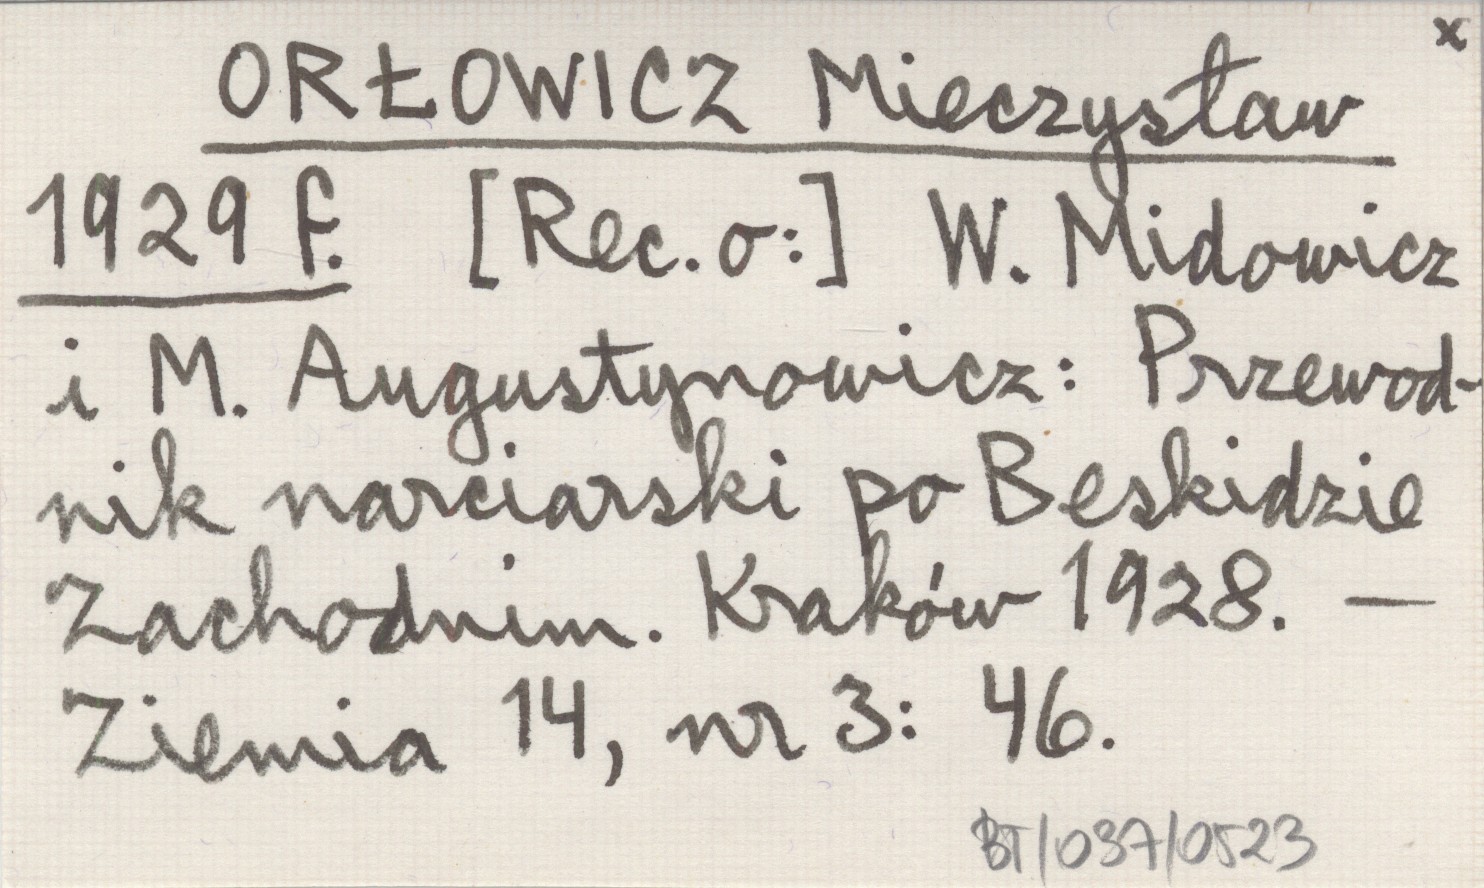 x
ORŁOWICZ Mieczysław
1929 f. [Rec. o:] W. Midowicz
i M. Augustynowicz: Przewod-
nik narciarski po Beskidzie
Zachodnim. Kraków 1928. —
Ziemia 14, nr 3: 46.
BT/037/0523